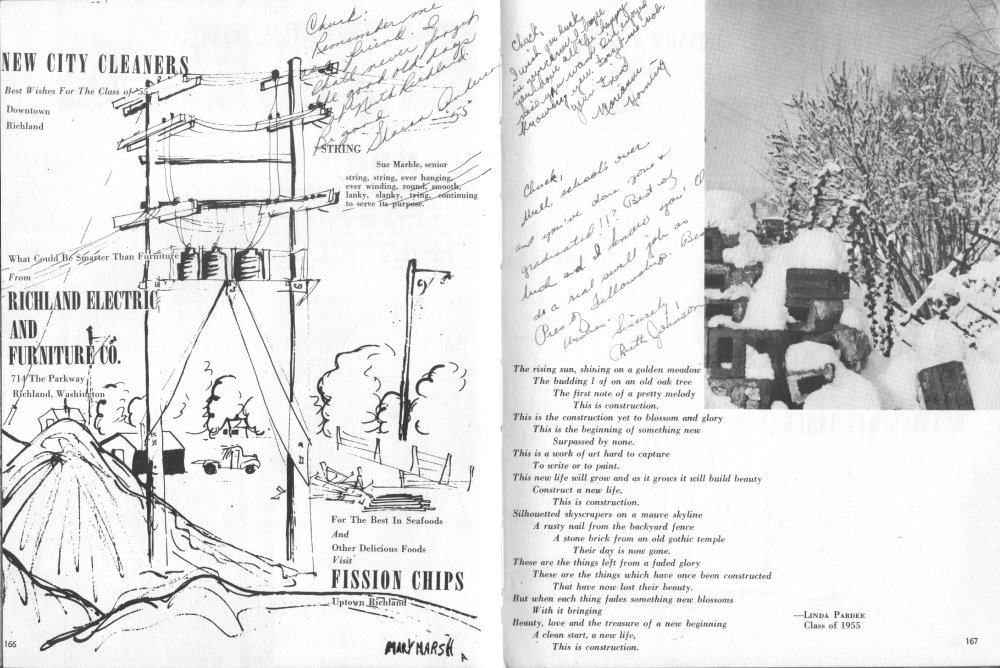 Chuck:
Remember me
as a friend. I
shall never forget
the good old days
at North Richland.
Be good
Sharon
"55"
NEW CITY CLEANERS
Best Wishes For The Class of '55
Downtown
Richland
STRING
Sue Marble, senior
string, string, ever hanging,
ever winding, round, smooth,
lanky, slanky, tying, continuing
to serve its purpose.
What Could Be Smarter Than Furniture
From
RICHLAND ELECTRIC
AND
FURNITURE CO.
714 The Parkway
Richland, Washington
For The Best In Seafoods
And
Other Delicious Foods
Visit
FISSION CHIPS
Uptown Richland
MARY MARSH
166
Chuck,
I wish you luck
in your career & hope
you have all the happy
I've enjoyed
knowing you.
Your friend
Marianne
Horning
Chuck,
Well, school's over
and you've done gone &
graduated!!? Best of
luck and I know you'll
do a real swell job as
Pres of Fellowship. Best
wishes. Sincerely,
Ruth Johnson
The rising sun, shining on a golden meadow
The budding l af on an old oak tree
The first note of a pretty melody
This is construction.
This is the construction yet to blossom and glory
This is the beginning of something new
Surpassed by none.
This is a work of art hard to capture
To write or to paint.
This new life will grow and as it grows it will build beauty
Construct a new life,
This is construction.
Silhouetted skyscrapers on a mauve skyline
A rusty nail from the backyard fence
A stone brick from an old gothic temple
Their day is now gone.
These are the things left from a faded glory
These are the things which have once been constructed
That have now lost their beauty.
But when each thing fades something new blossoms
With it bringing
Beauty, love and the treasure of a new beginning
A clean start, a new life,
This is construction.
—LINDA PARDEE
Class of 1955
167